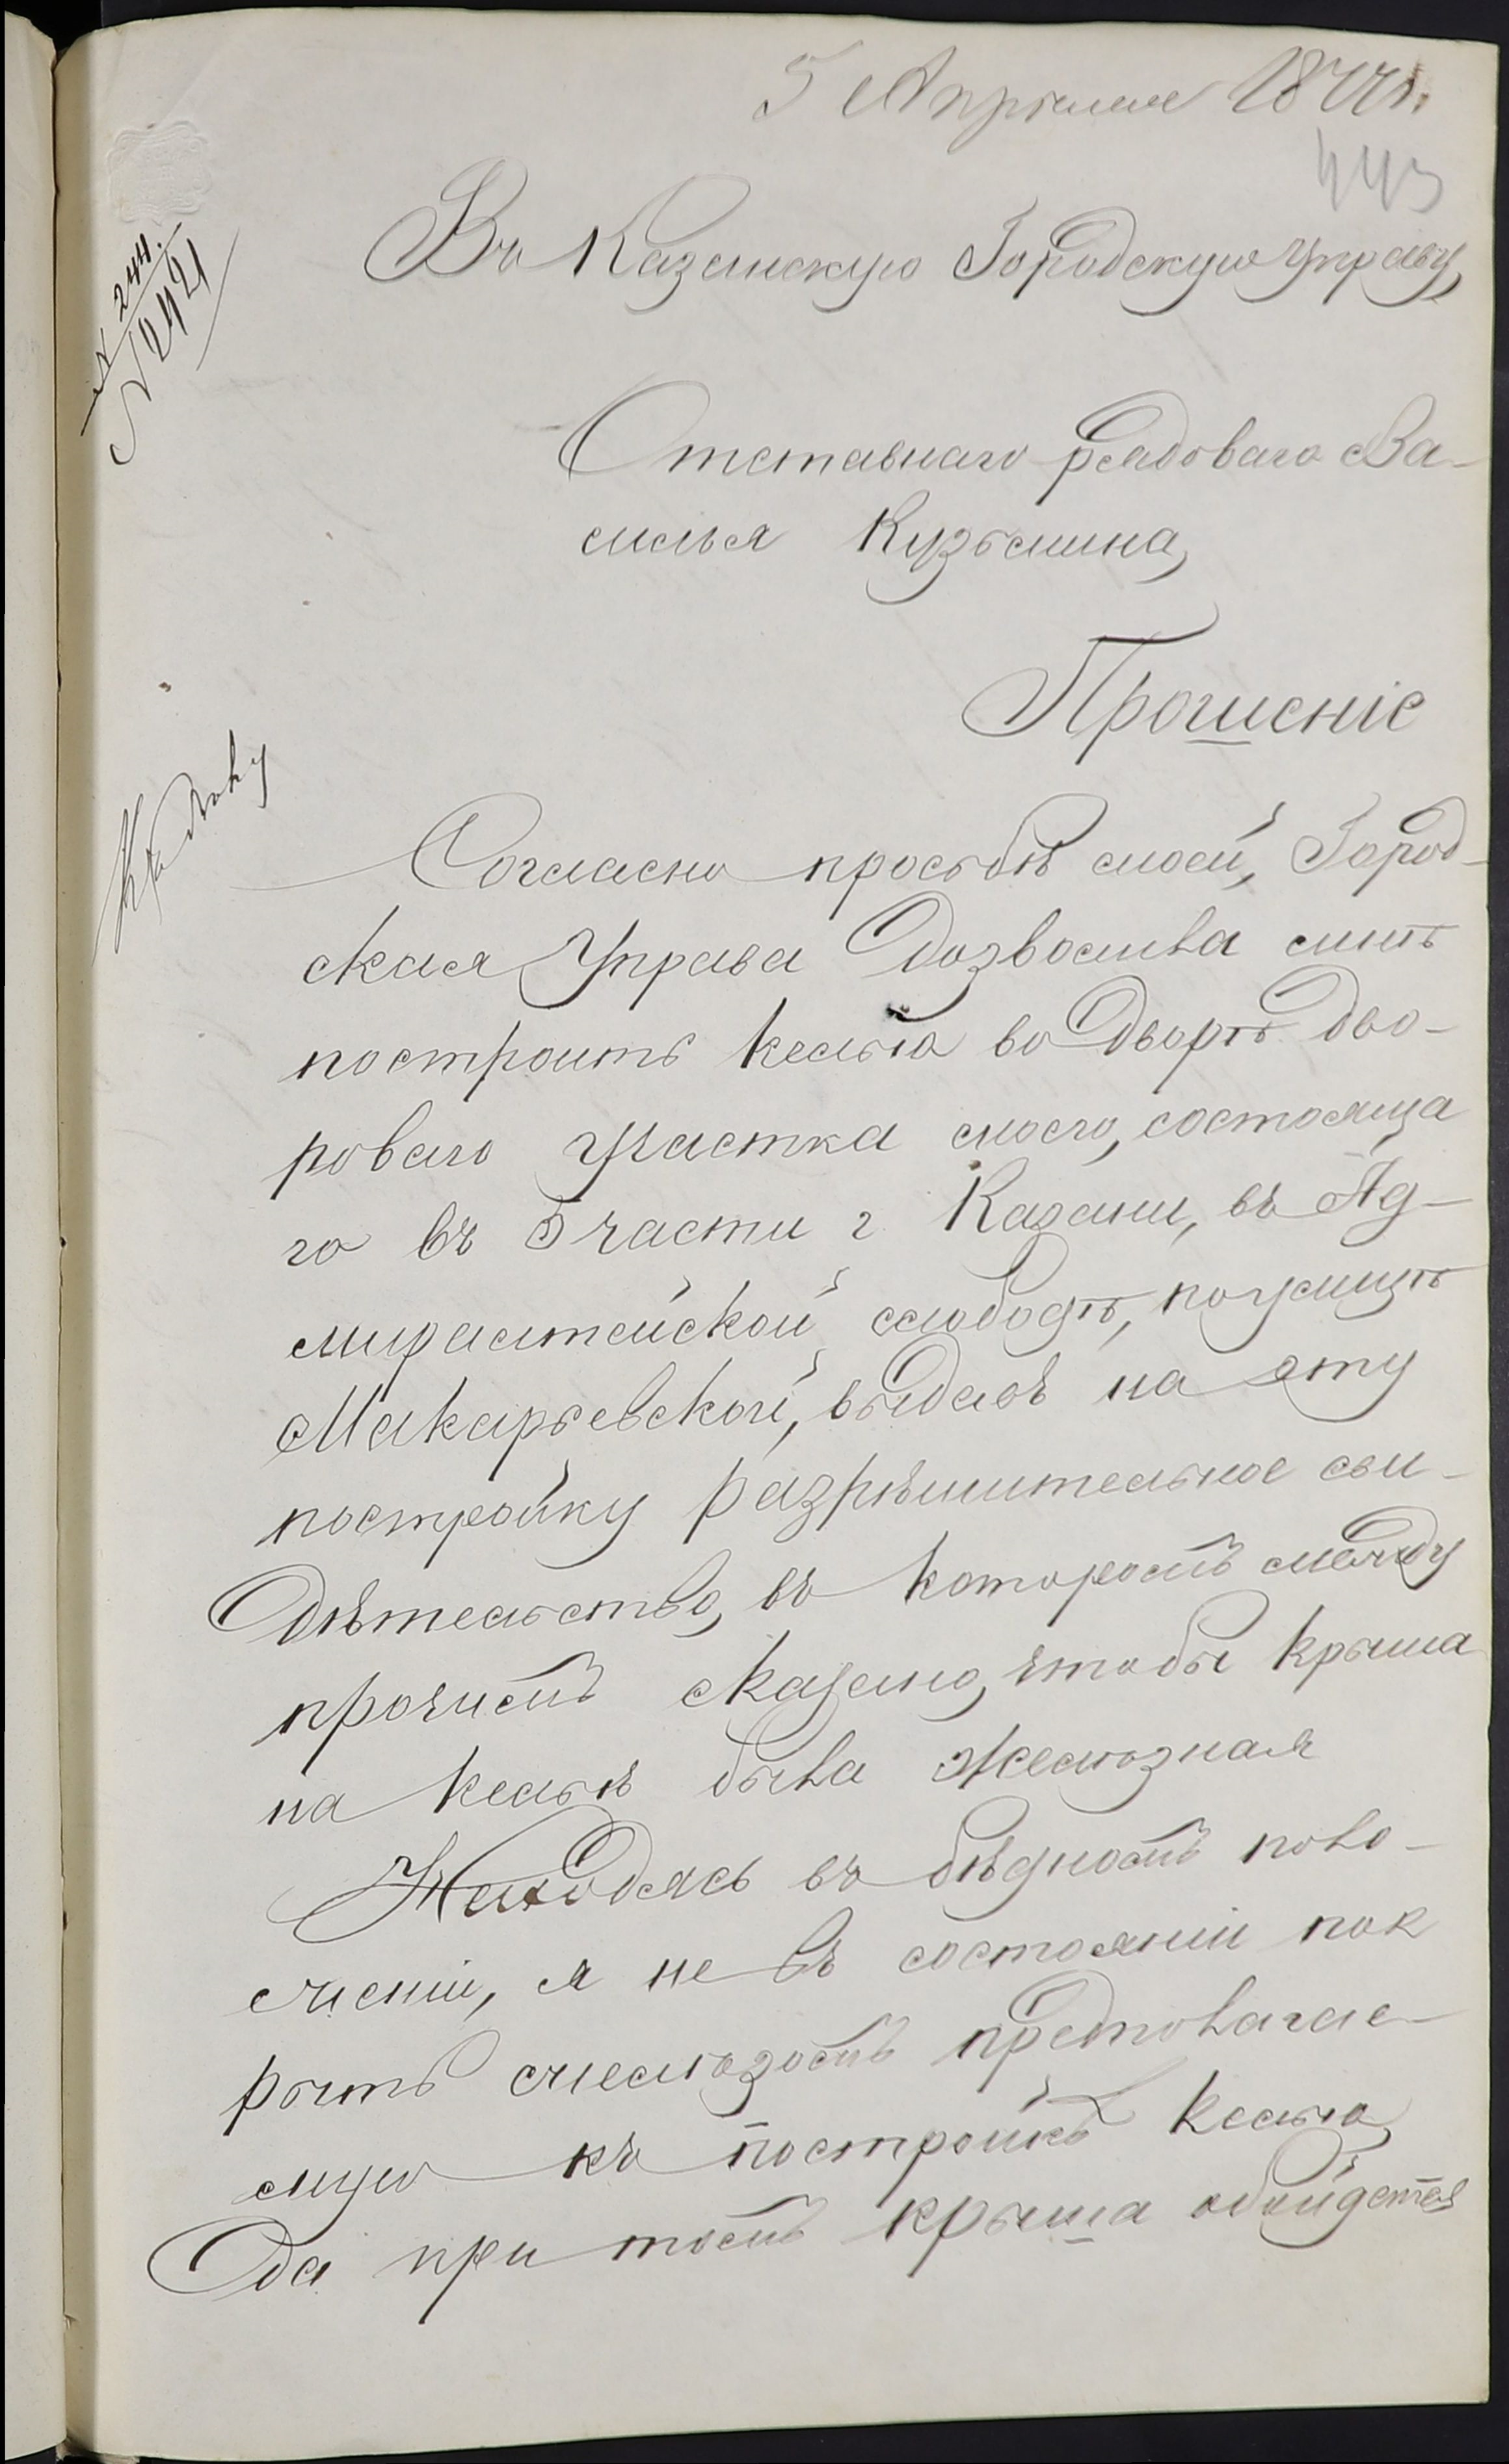 5 Апрѣля 1877 г.
443
Въ Казанскую Городскую Управу,
№ 244.
№ 2421
Отставнаго рядоваго Ва-
силья Кузьмина,
Прошеніе
Согласно просьбѣ моей, Город-
ская Управа дозволила мнѣ
построить келью во дворѣ дво-
роваго участка моего, состояща
го въ 5 части г Казани, въ Ад-
миралтейской слободѣ, по улицѣ
Макарьевской, выдавъ на эту
постройку разрѣшительное сви-
дѣтельство, въ которомъ между
прочимъ сказано, чтобы крыша
на кельѣ была желѣзная
Находясь въ бѣдномъ поло-
женіи, я не въ состояніи пок
рыть желѣзомъ предполагае-
мую къ постройкѣ келью,
да при томъ крыша обойдется